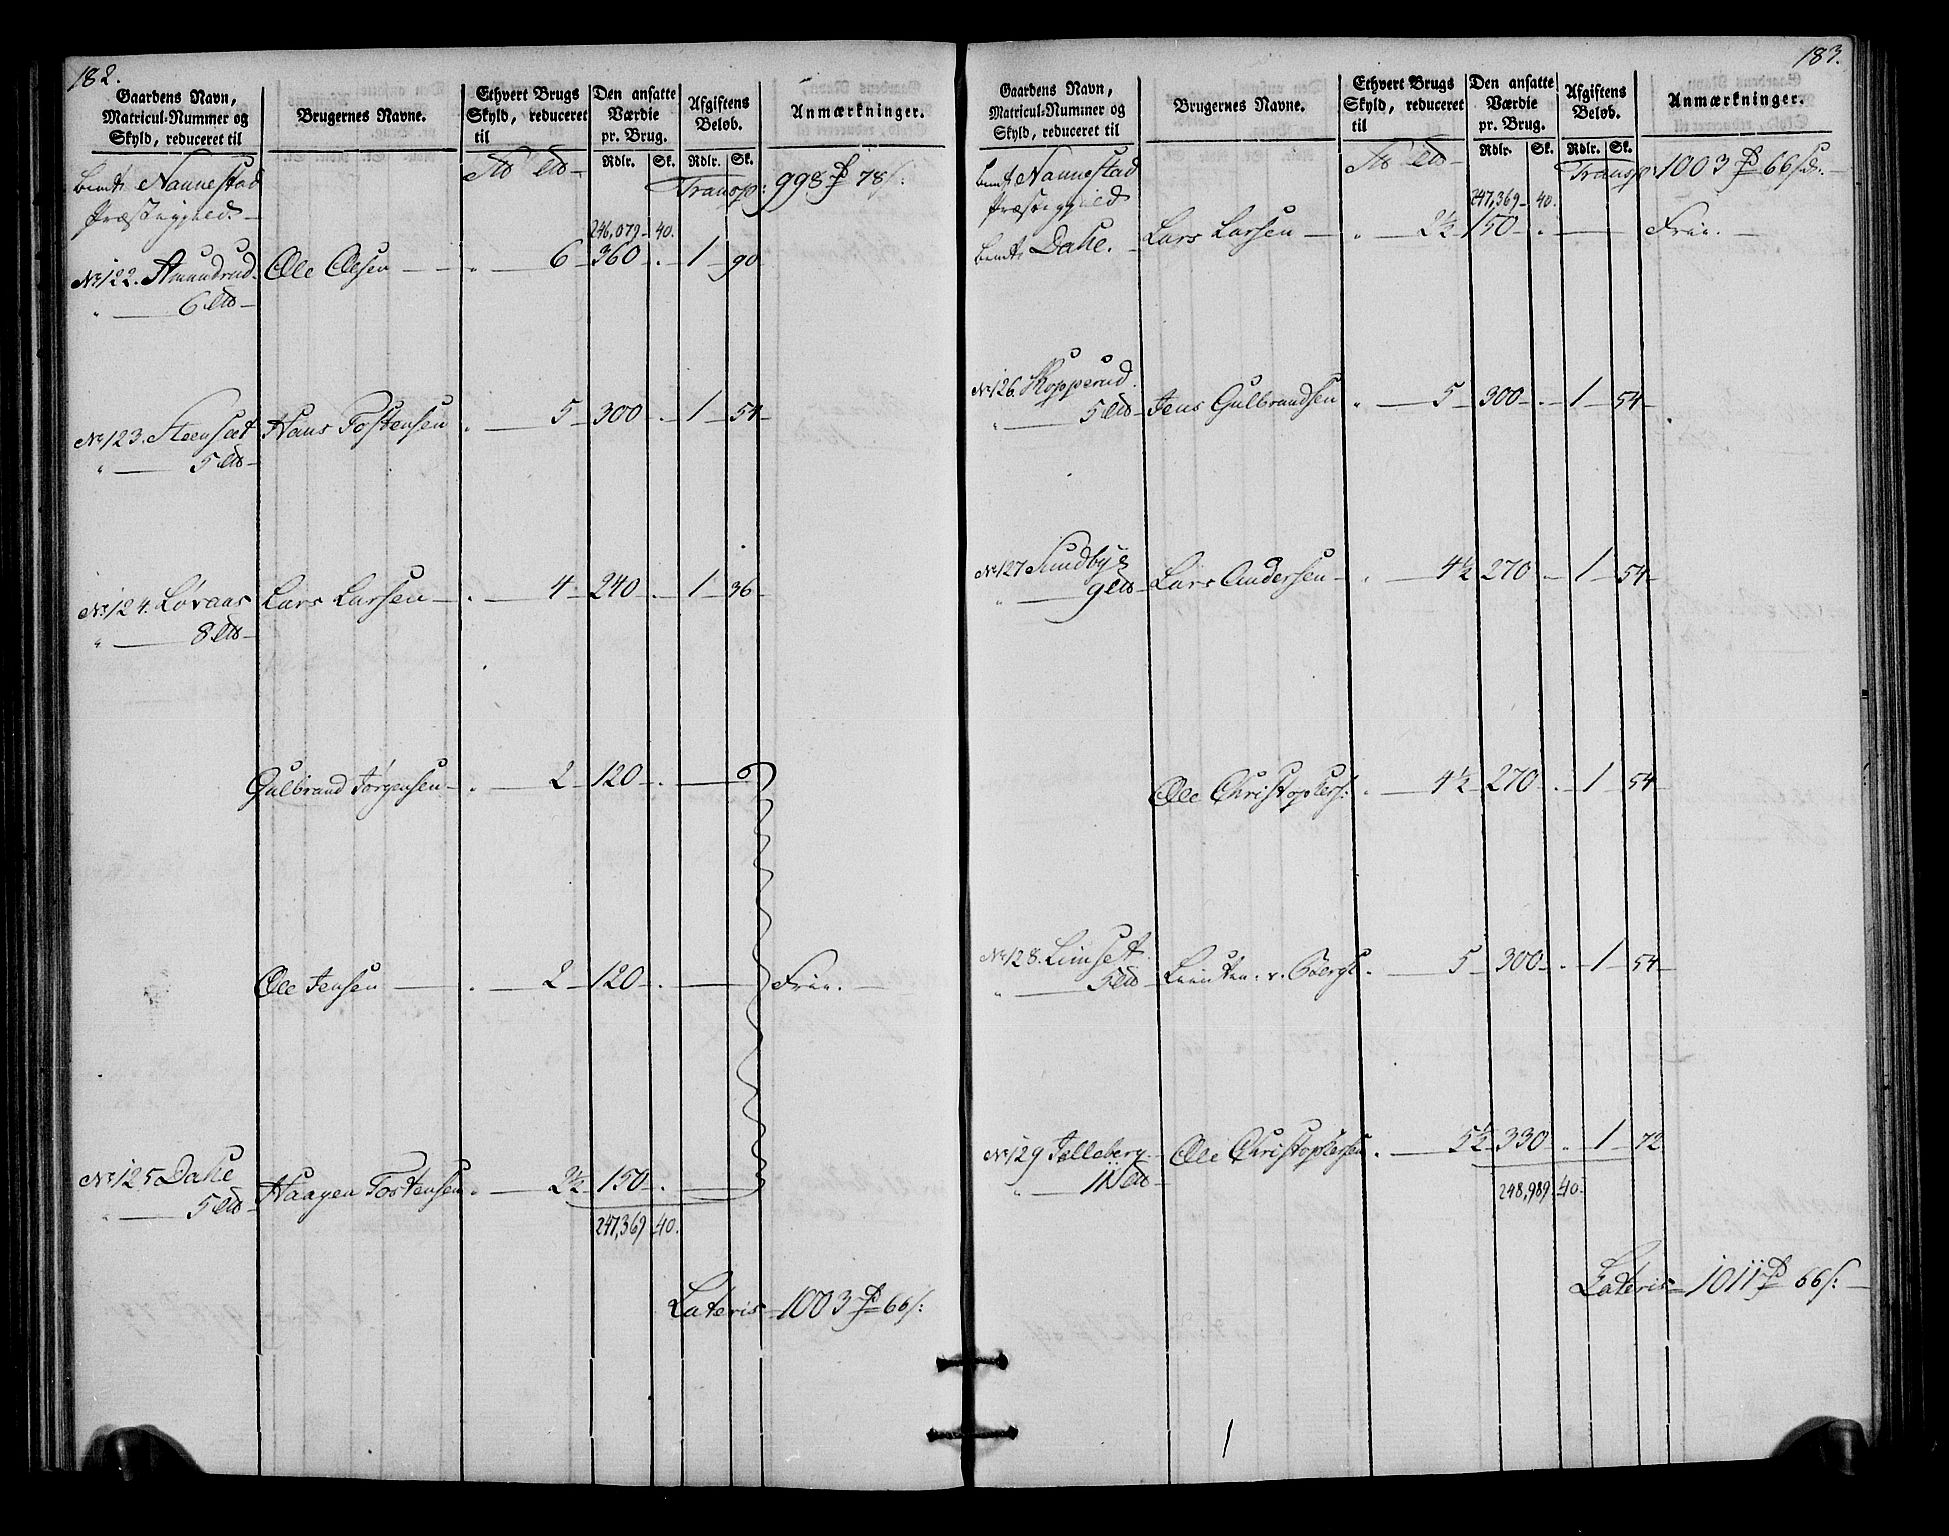 182.
Gaardens Navn, Matricul-Nummer og Skyld, reduceret til | Brugernes Navne. | Ethvert Brugs Skyld, reduceret til | Den ansatte Værdie pr. Brug. | Afgiftens Beløb. | Anmærkninger.
Rdlr. | Sk. | Rdlr. | Sk.
Nannestad | Transp: 998 78 s:
Præstegjeld
246,079 - 40.
No 122. Amundrud | Ole Olsen | 6 | 360 | 1 | 90
6
No 123. Steensæt | Hans Tostensen | 5 | 300 | 1 | 54
5
No 124. Løvaas | Lars Larsen | 4 | 240 | 1 | 36
8
Gulbrand Jørgensen | 2 | 120
Ole Jensen | 2 | 120 | Frie.
No 125 Dahe | Haagen Tostensen | 2½ | 150
5
247,369 40.
Lateris 1003 66 s:
183.
Gaardens Navn, Matricul-Nummer og Skyld, reduceret til | Brugernes Navne. | Ethvert Brugs Skyld, reduceret til | Den ansatte Værdie pr. Brug. | Afgiftens Beløb. | Anmærkninger.
Rdlr. | Sk. | Rdlr. | Sk.
Nannestad | Transp: 1003 66
Præstegjeld
247,369 - 40.
Dahe. | Lars Larsen | 2½ | 150 | Frie.
No 126. Kopperud | Jens Gulbrandsen | 5 | 300 | 1 | 54
5
No 127 Sundbye | Lars Andersen | 4½ | 270 | 1 | 54
9
Ole Christophers: | 4½ | 270 | 1 | 54
No 128. Limset | 5 | 300 | 1 | 54
5
No 129 Jelleberg | Ole Christophersen | 5½ | 330 | 1 | 72
11
248,989 40.
Lateris 1011 66 s: